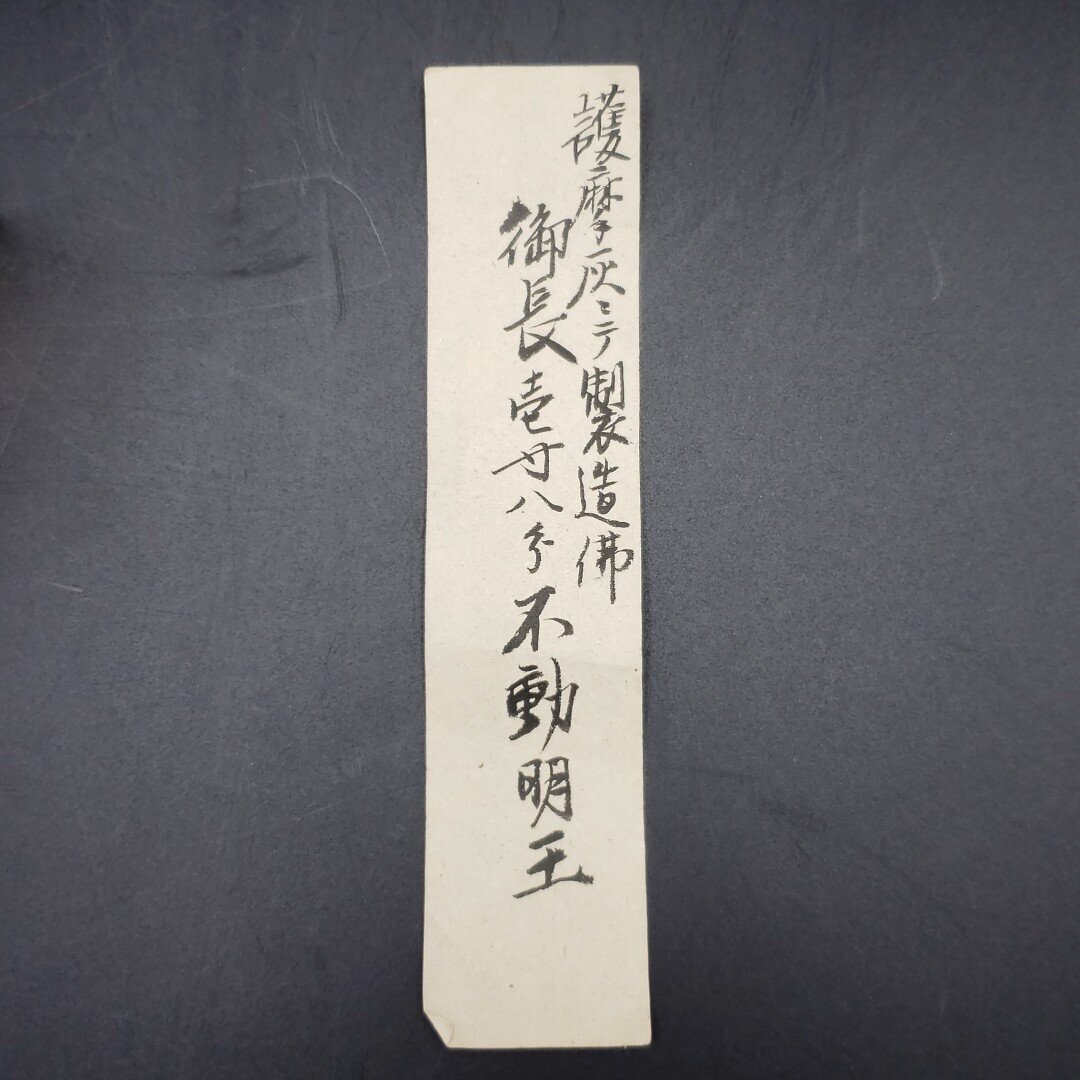 護摩灰ミテ製造佛
御長壱寸八分不動明王